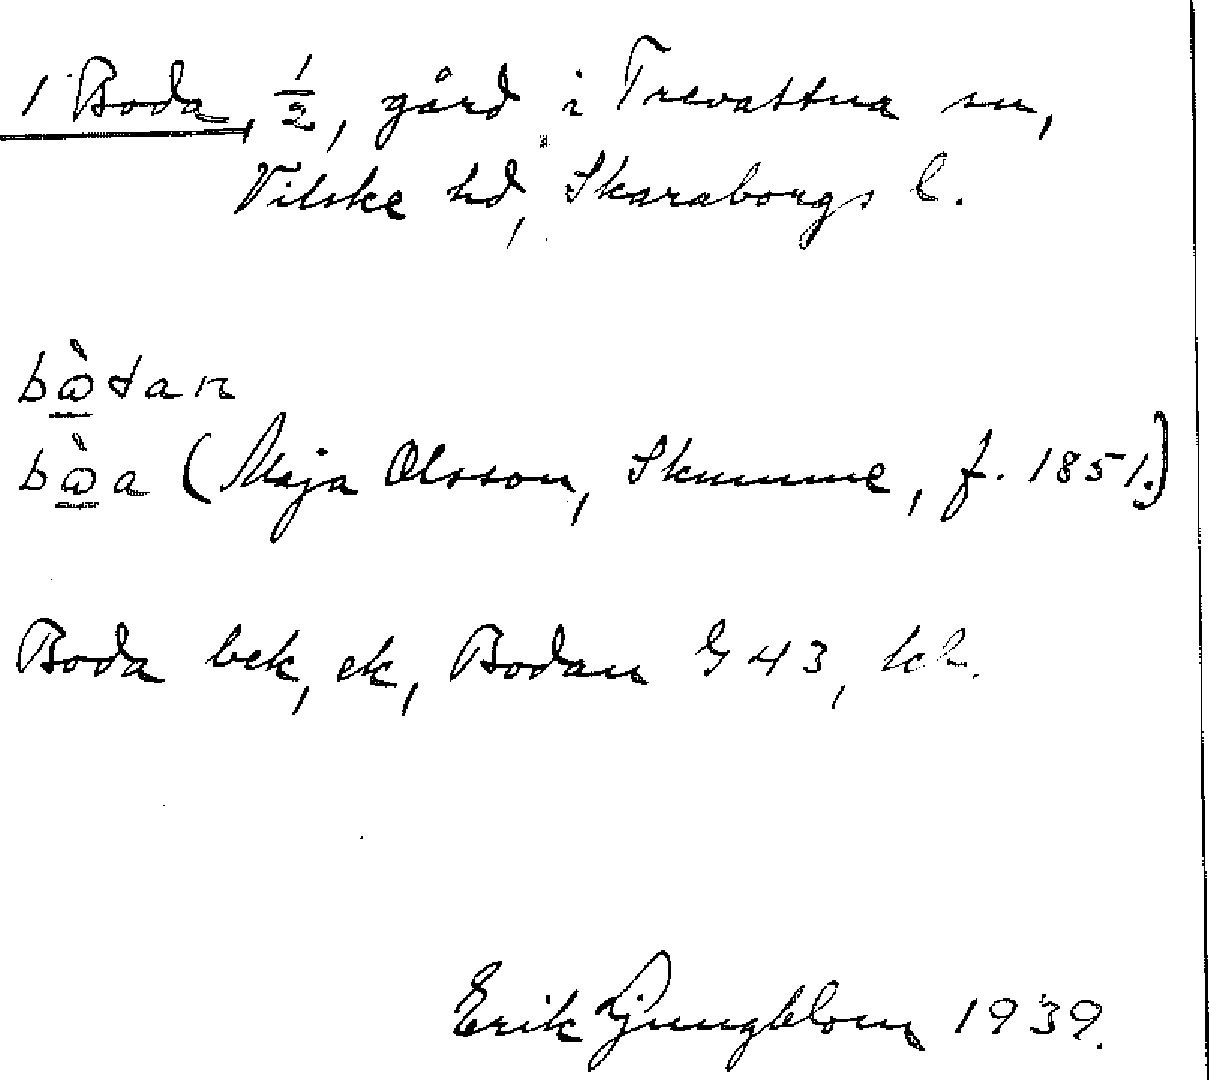 1 Boda, 1/2, gård i Trevattna sn,
Vilske hd, Skaraborgs l.
bὼdan
bὼa (Maja Olsson, Skumme, f. 1851.)
Boda bek, ek, Bodan G 43, kh.
Erik Ljungblom 1939.